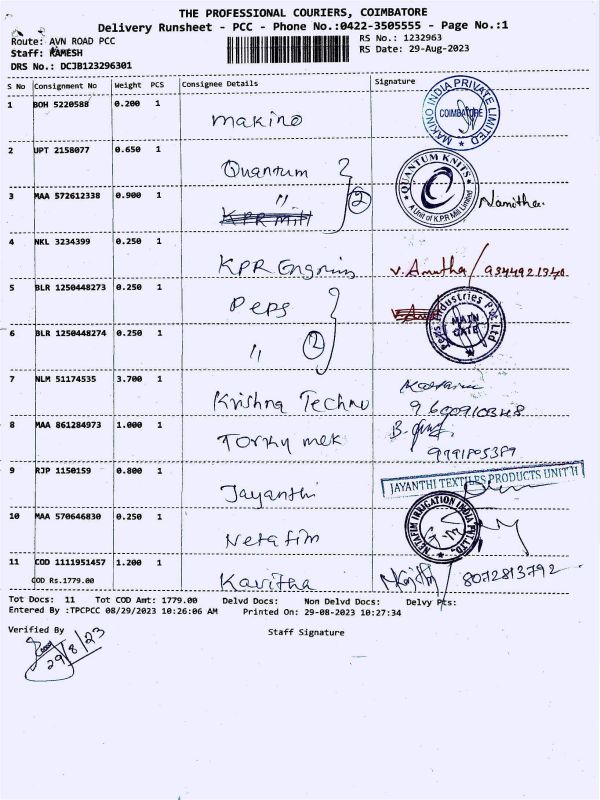 THE PROFESSIONAL COURIERS, COIMBATORE
Delivery Runsheet - PCC - Phone No.:0422-3505555 - Page No.:1
Route: AVN ROAD PCC
RS No.: 1232963
Staff: RAMESH
RS Date: 29-Aug-2023
DRS No.: DCJB123296301
S No Consignment No Weight PCS Consignee Details Signature
1 BOH 5220588 0.200 1 Makino
MAKINO INDIA PRIVATE LIMITED COIMBATORE
2 UPT 2158077 0.650 1 Quantum
QUANTUM KNITS A Unit of K.P.R Mill Limited
3 MAA 572612338 0.900 1 " KPR Mill 2 Namitha
4 NKL 3234399 0.250 1 KPR Engnring V. Amutha / 9344921340
5 BLR 1250448273 0.250 1 Peps
Peps Industries Pvt. Ltd MAIN GATE
6 BLR 1250448274 0.250 1 " 2
7 NLM 51174535 3.700 1 Krishna Techno
8 MAA 861284973 1.000 1 Torky mek
9 RJP 1150159 0.800 1 Jayanthi
JAYANTHI TEXTILES PRODUCTS UNIT II
10 MAA 570646830 0.250 1 Netafim
NETAFIM IRRIGATION INDIA PVT. LTD.
11 COD 1111951457 1.200 1 Kavitha 8072813792
COD Rs.1779.00
Tot Docs: 11 Tot COD Amt: 1779.00 Delvd Docs: Non Delvd Docs: Delvy Pts:
Entered By :TPCPCC 08/29/2023 10:26:06 AM Printed On: 29-08-2023 10:27:34
Verified By
Staff Signature
29/8/23